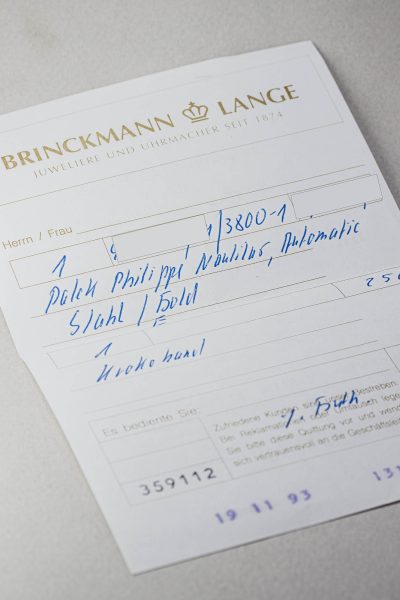 BRINCKMANN LANGE
JUWELIERE UND UHRMACHER SEIT 1874
Herrn / Frau
1 1/3800-1
Patek Philippe Nautilus, Automatic
Stahl / Gold
1
Krokoband
250
Es bediente Sie:
Zufriedene Kunden sind unser Bestreben.
Bei Reklamationen oder Umtausch lege
Sie bitte diese Quittung vor und wend
sich vertrauensvoll an die Geschäftslei
359112
19 11 93
131